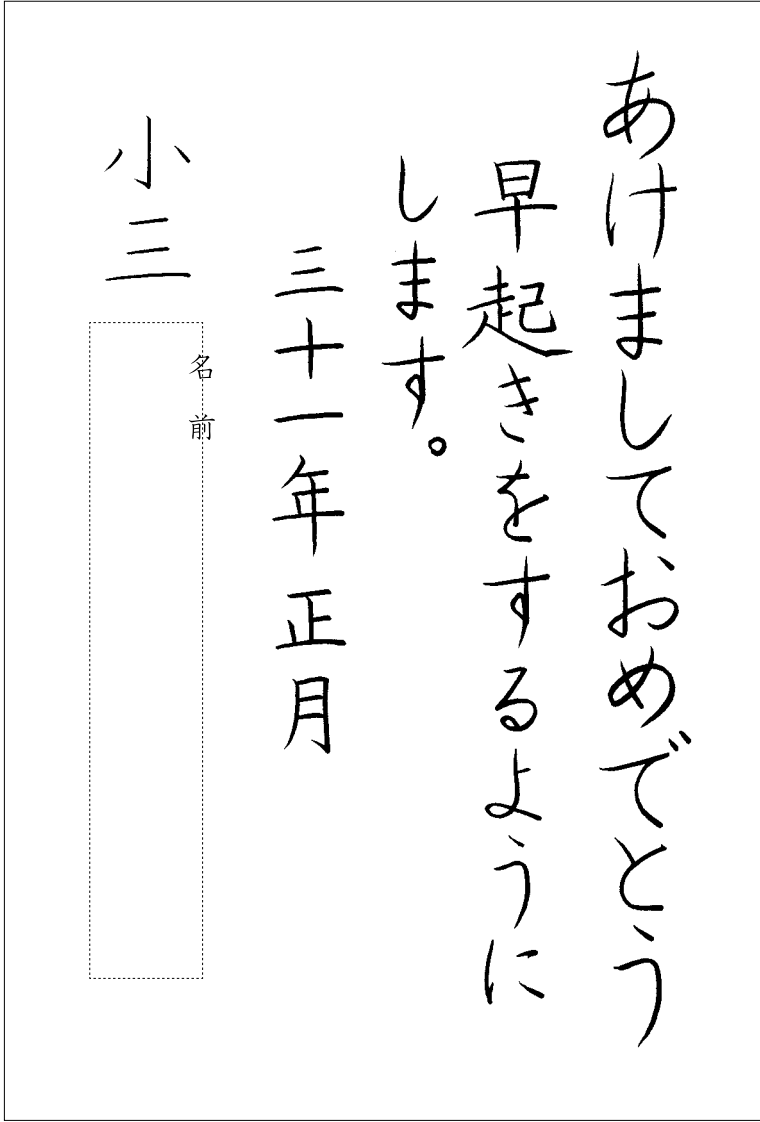 あけましておめでとう
早起きをするように
します。
三十一年正月
小三
名前